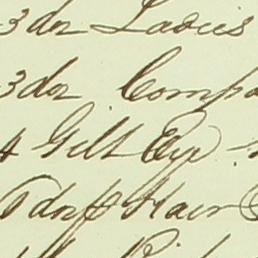 3 doz Ladies
3 doz Compa
4 Gilt Eye
doz Hair